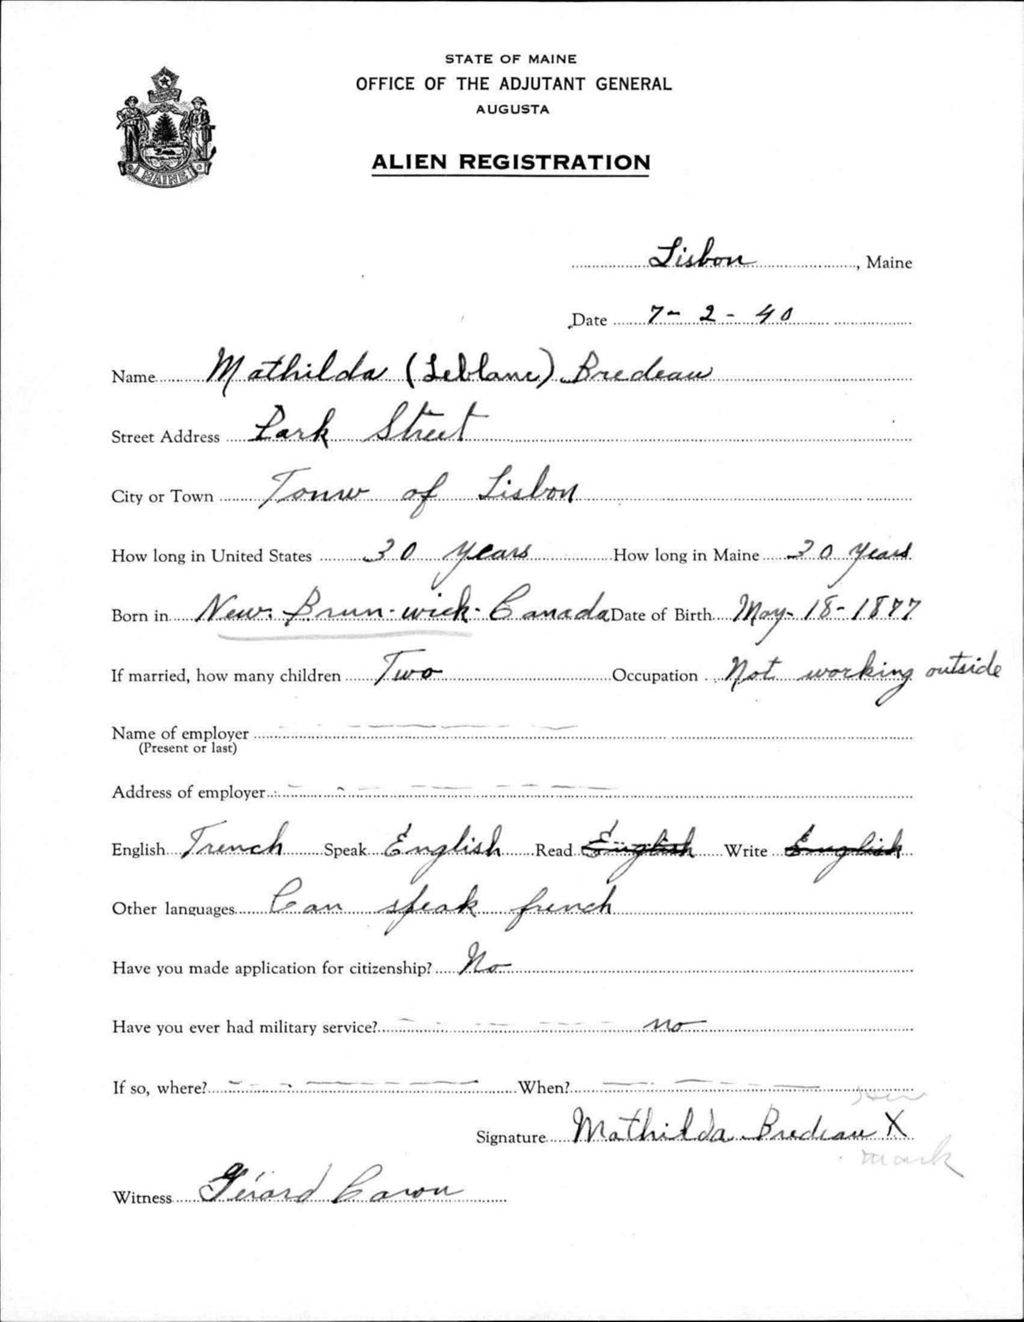 STATE OF MAINE
OFFICE OF THE ADJUTANT GENERAL
AUGUSTA
MAINE
ALIEN REGISTRATION
Lisbon, Maine
Date 7-2-40
Name Mathilda (Leblanc) Bredeau
Street Address Park Street
City or Town Tonw of Lisbon
How long in United States 30 years How long in Maine 30 years
Born in New Brun-wick Canada Date of Birth May-18-1877
If married, how many children Two Occupation Not working outside
Name of employer
(Present or last)
Address of employer
English French Speak English Read English Write English
Other languages Can speak french
Have you made application for citizenship? No
Have you ever had military service? no
If so, where? When?
her
Signature Mathilda Bredeau X
mark
Witness Gérard Caron